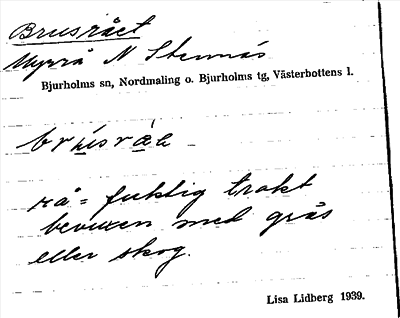 Brusrået
Myrrå N Stennäs
Bjurholms sn, Nordmaling o. Bjurholms tg, Västerbottens l.
rå = fuktig trakt
bevuxen med gräs
eller skog.
Lisa Lidberg 1939.